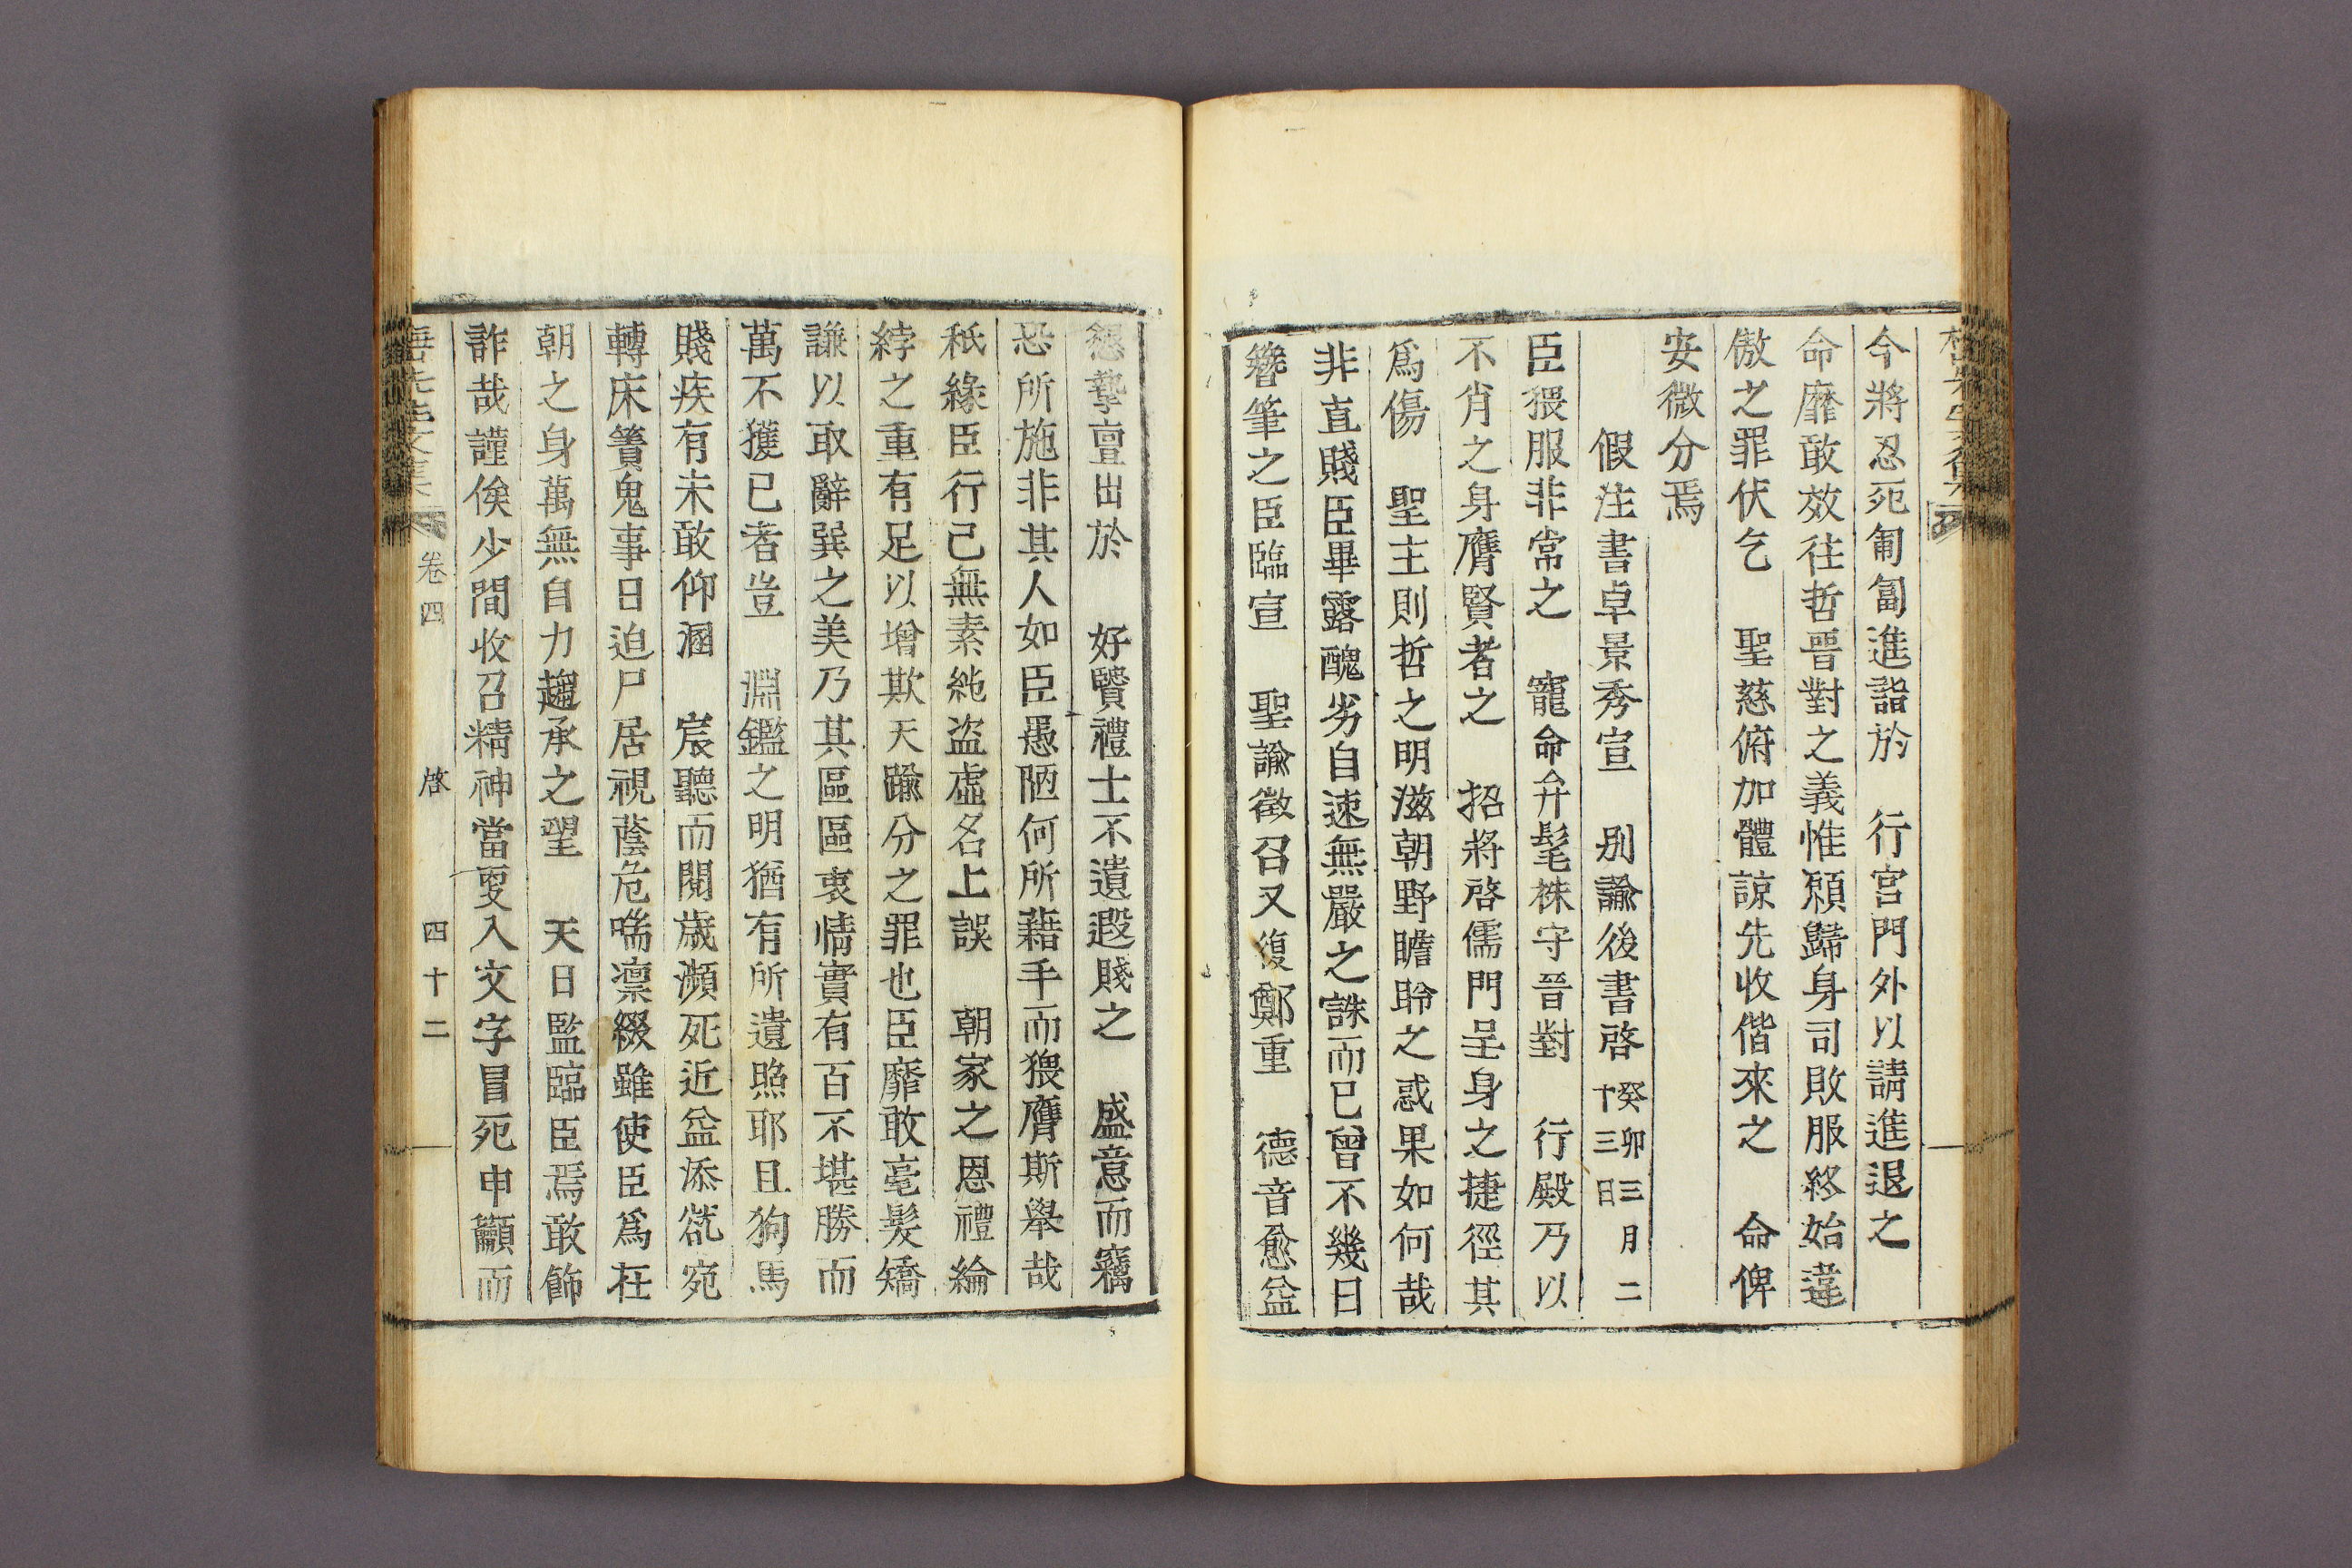 今將忍死匍匐進詣於 行宮門外以請進退之
命靡敢效往哲晉對之義惟願歸身司敗服終始違
傲之罪伏乞 聖慈俯加體諒先收偕來之 命俾
安微分焉
假注書卓景秀宣 別諭後書啓 癸卯三月二十三日
臣猥服非常之 寵命弁髦株守晉對 行殿乃以
不肖之身膺賢者之 招將啓儒門呈身之捷徑其
爲傷 聖主則哲之明滋朝野瞻聆之惑果如何哉
非直賤臣畢露醜劣自速無嚴之誅而已曾不幾日
簪筆之臣臨宣 聖諭徵召又復鄭重 德音愈益
懇摯亶出於 好賢禮士不遺遐賤之 盛意而竊
恐所施非其人如臣愚陋何所藉手而猥膺斯擧哉
秖緣臣行己無素純盜虛名上誤 朝家之恩禮綸
綍之重有足以增欺天踰分之罪也臣靡敢毫髮矯
謙以取辭巽之美乃其區區衷情實有百不堪勝而
萬不獲已者豈 淵鑑之明猶有所遺照耶且狗馬
賤疾有未敢仰溷 宸聽而閱歲濒死近益添㞃宛
轉床簀鬼事日迫尸居視蔭危喘凛綴雖使臣爲在
朝之身萬無自力趨承之望 天日監臨臣焉敢飾
詐哉謹俟少間收召精神當更入文字冒死申籲而
卷四 啓 四十二